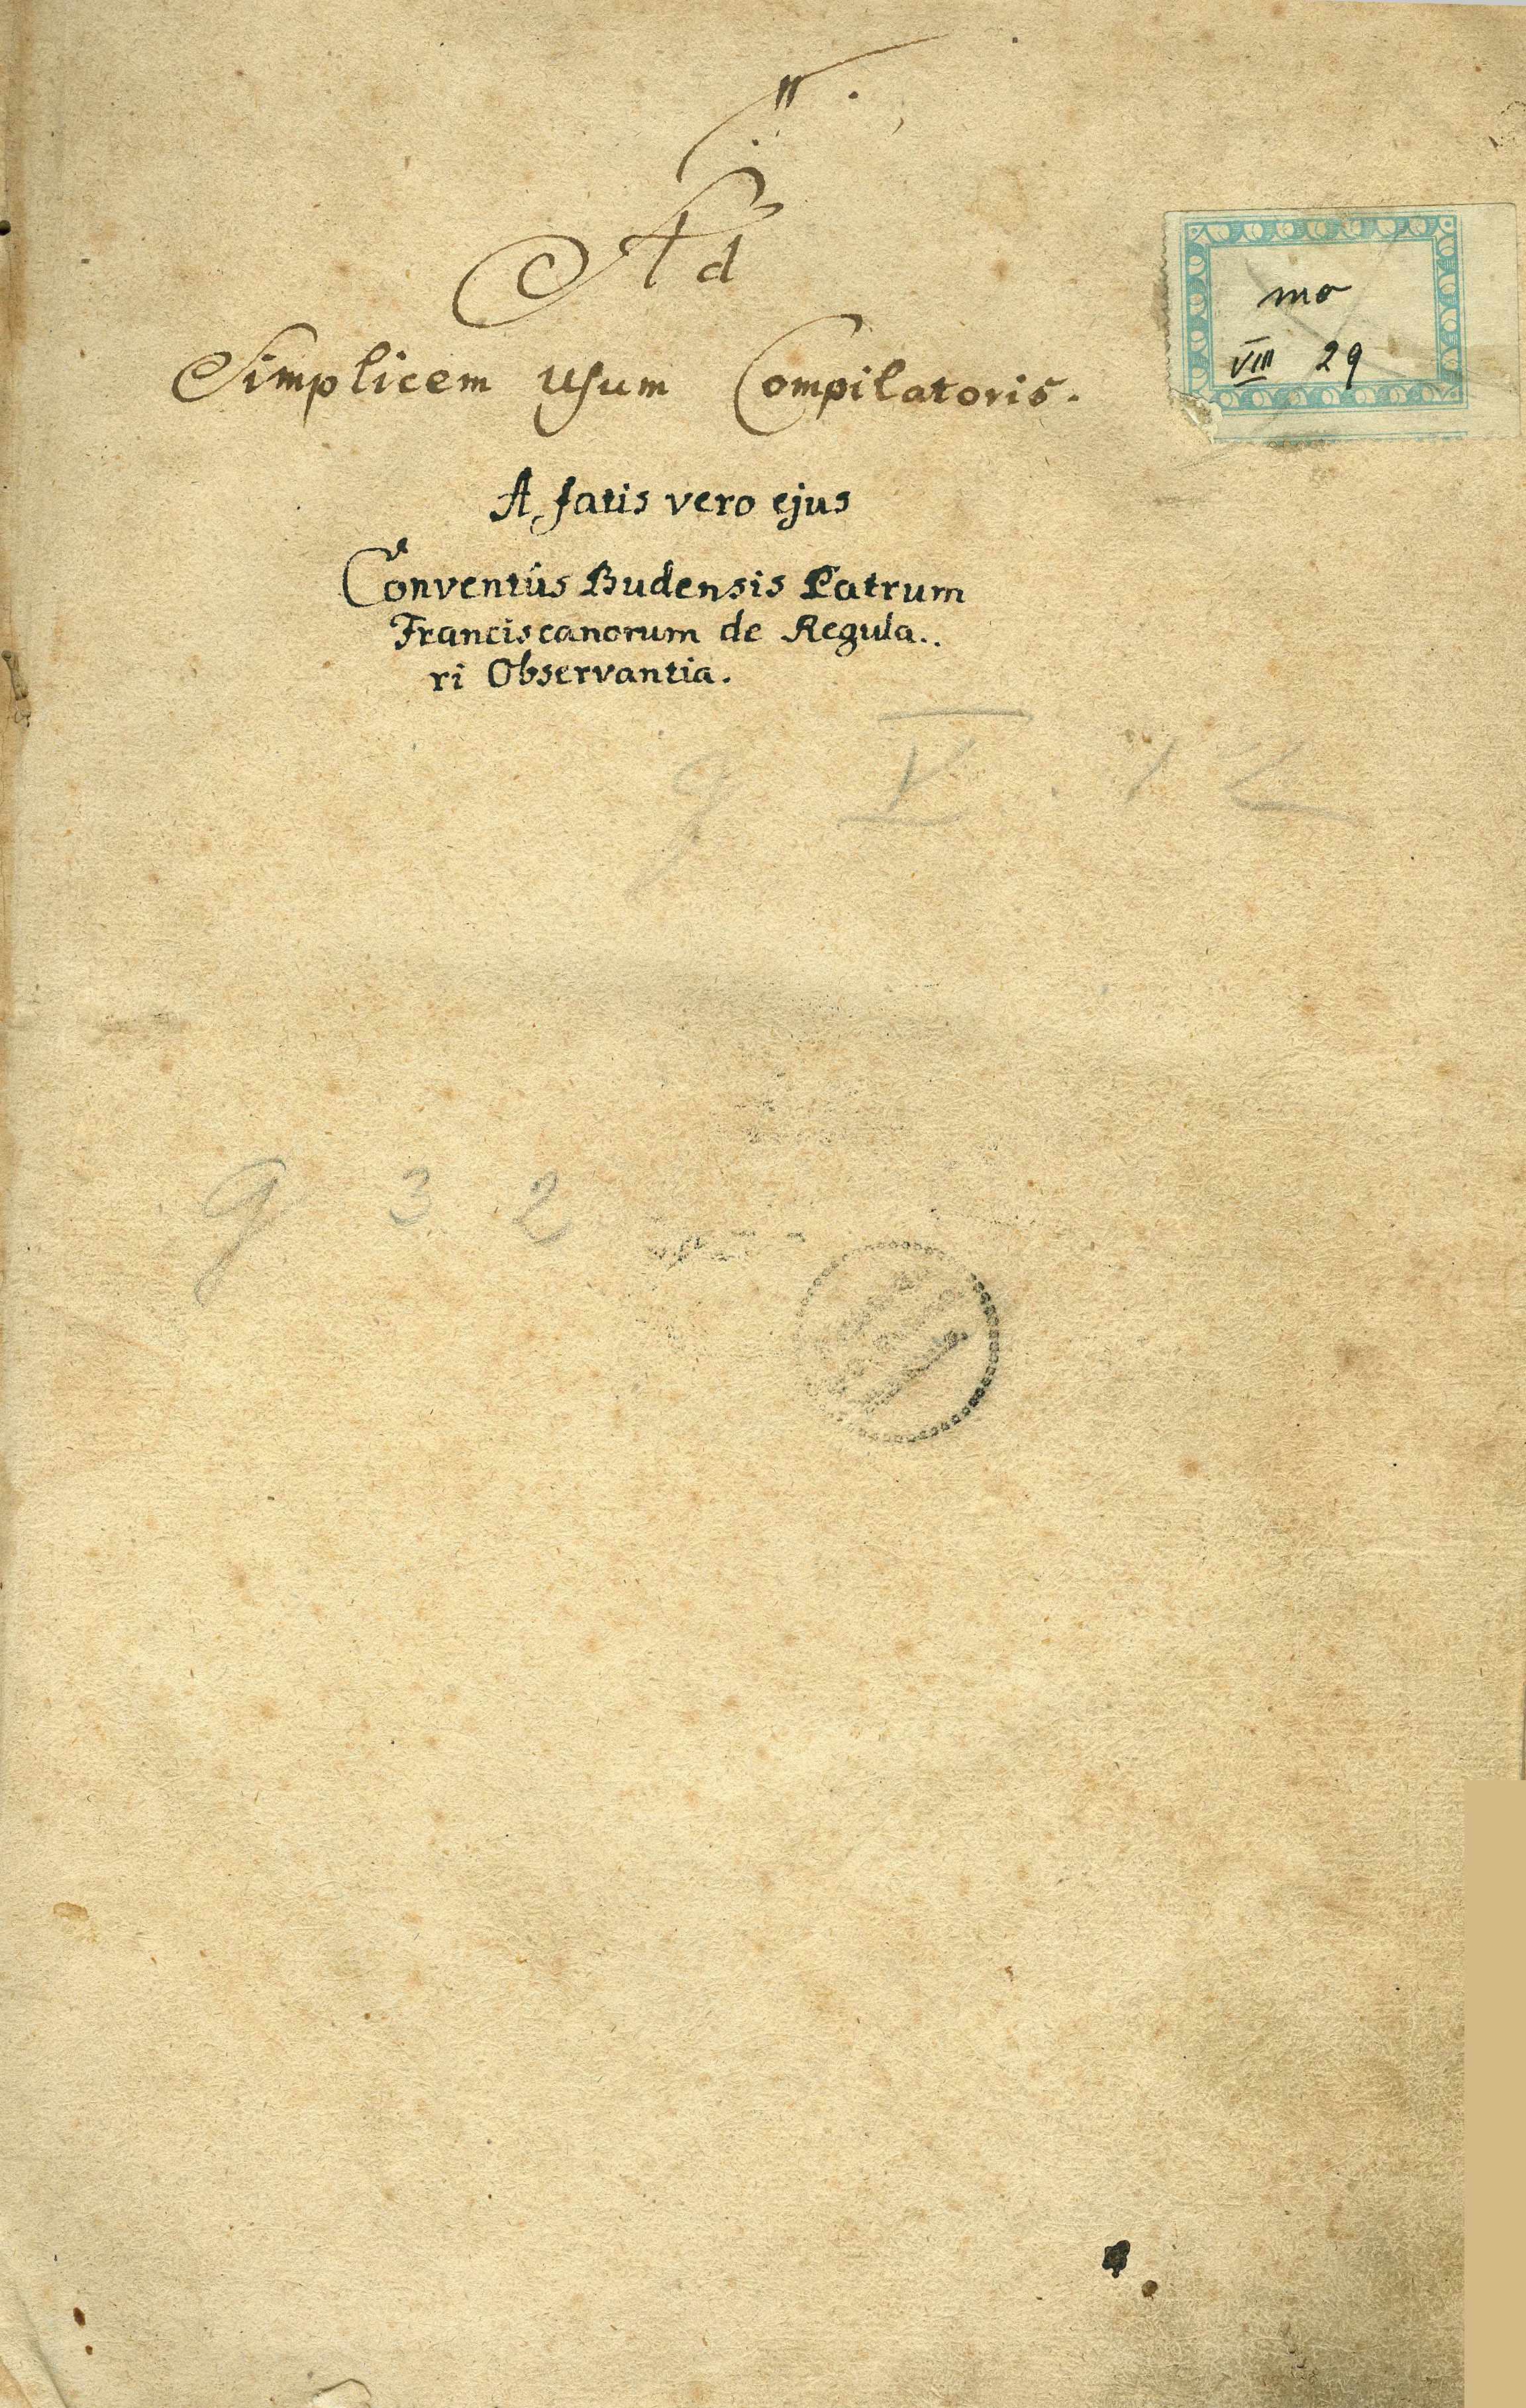 Ad
Simplicem usum Compilatoris.
mo
VIII 29
A fatis vero ejus
Conventûs Budensis Patrum
Franciscanorum de Regula..
ri Observantia.
g V. 12
g 32